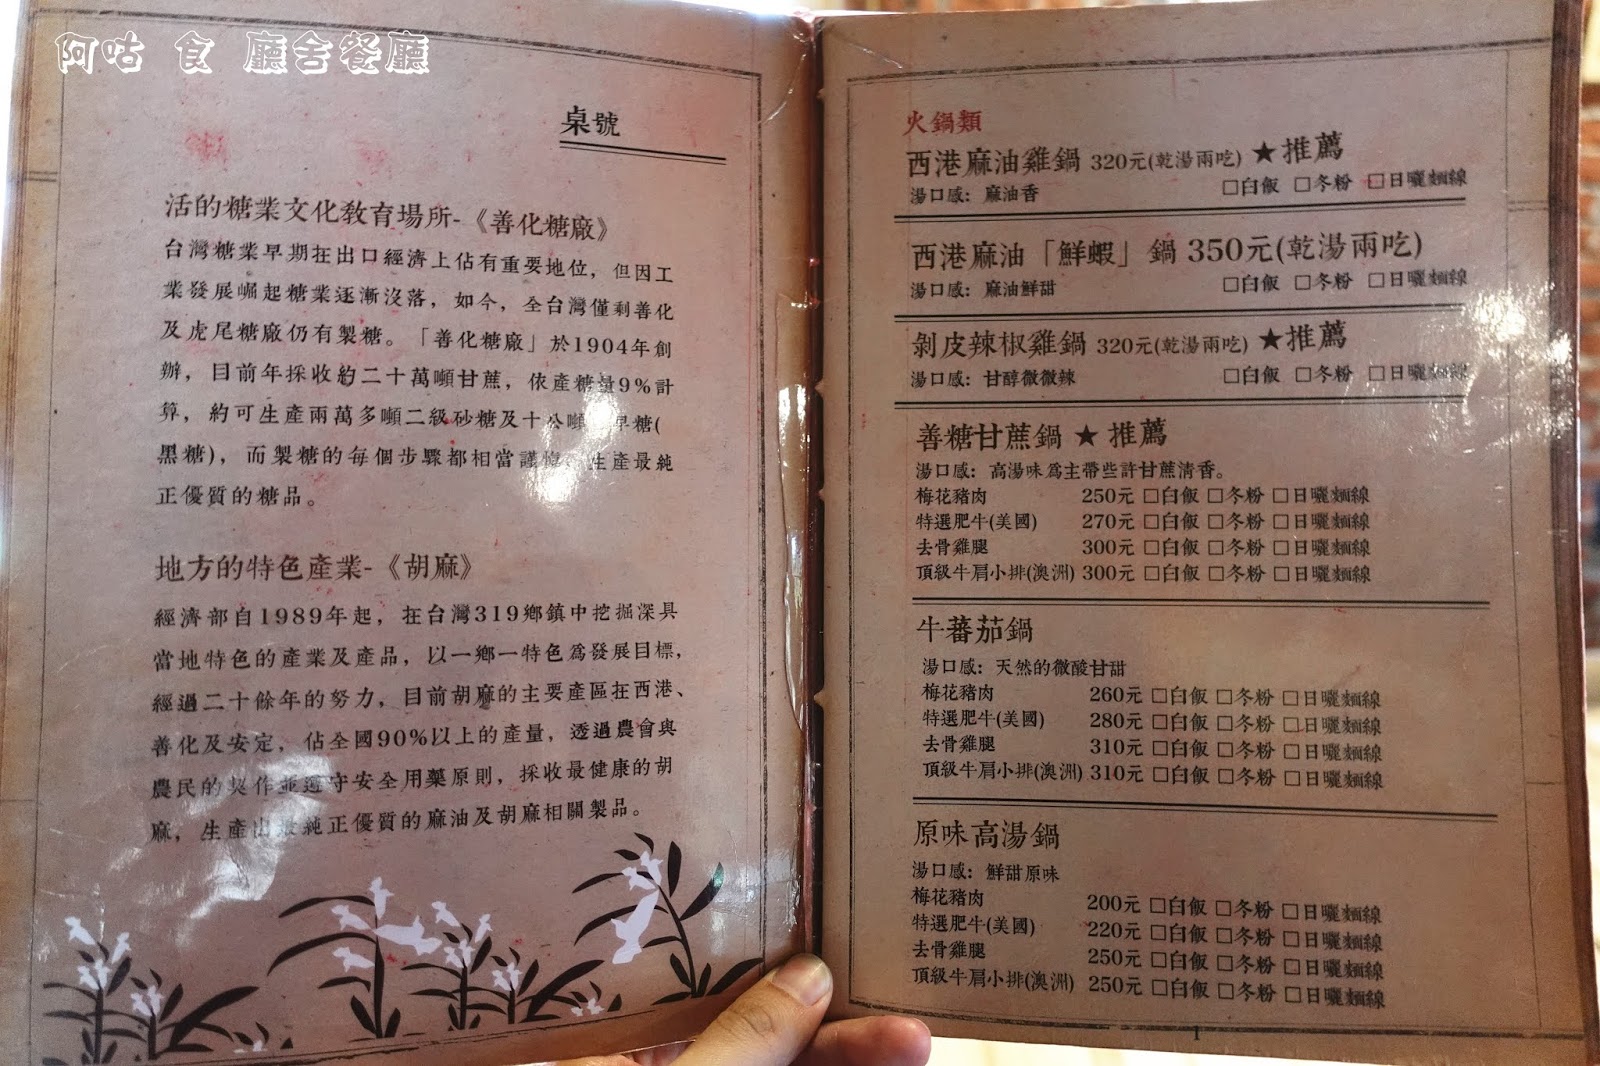 阿咕 食 廳舍餐廳
桌號
活的糖業文化教育場所-《善化糖廠》
台灣糖業早期在出口經濟上佔有重要地位，但因工
業發展崛起糖業逐漸沒落，如今，全台灣僅剩善化
及虎尾糖廠仍有製糖。「善化糖廠」於1904年創
辦，目前年採收約二十萬噸甘蔗，依產糖量9%計
算，約可生產兩萬多噸二級砂糖及十公噸 早糖(
黑糖)，而製糖的每個步驟都相當謹慎 生產最純
正優質的糖品。
地方的特色產業-《胡麻》
經濟部自1989年起，在台灣319鄉鎮中挖掘深具
當地特色的產業及產品，以一鄉一特色為發展目標，
經過二十餘年的努力，目前胡麻的主要產區在西港、
善化及安定，佔全國90%以上的產量，透過農會與
農民的契作並遵守安全用藥原則，採收最健康的胡
麻，生產出最純正優質的麻油及胡麻相關製品。
火鍋類
西港麻油雞鍋 320元(乾湯兩吃) ★推薦
湯口感：麻油香 □白飯 □冬粉 □日曬麵線
西港麻油「鮮蝦」鍋 350元(乾湯兩吃)
湯口感：麻油鮮甜 □白飯 □冬粉 □日曬麵線
剝皮辣椒雞鍋 320元(乾湯兩吃) ★推薦
湯口感：甘醇微微辣 □白飯 □冬粉 □日曬麵線
善糖甘蔗鍋 ★ 推薦
湯口感：高湯味為主帶些許甘蔗清香。
梅花豬肉 250元 □白飯 □冬粉 □日曬麵線
特選肥牛(美國) 270元 □白飯 □冬粉 □日曬麵線
去骨雞腿 300元 □白飯 □冬粉 □日曬麵線
頂級牛肩小排(澳洲) 300元 □白飯 □冬粉 □日曬麵線
牛蕃茄鍋
湯口感：天然的微酸甘甜
梅花豬肉 260元 □白飯 □冬粉 □日曬麵線
特選肥牛(美國) 280元 □白飯 □冬粉 □日曬麵線
去骨雞腿 310元 □白飯 □冬粉 □日曬麵線
頂級牛肩小排(澳洲) 310元 □白飯 □冬粉 □日曬麵線
原味高湯鍋
湯口感：鮮甜原味
梅花豬肉 200元 □白飯 □冬粉 □日曬麵線
特選肥牛(美國) 220元 □白飯 □冬粉 □日曬麵線
去骨雞腿 250元 □白飯 □冬粉 □日曬麵線
頂級牛肩小排(澳洲) 250元 □白飯 □冬粉 □日曬麵線
1